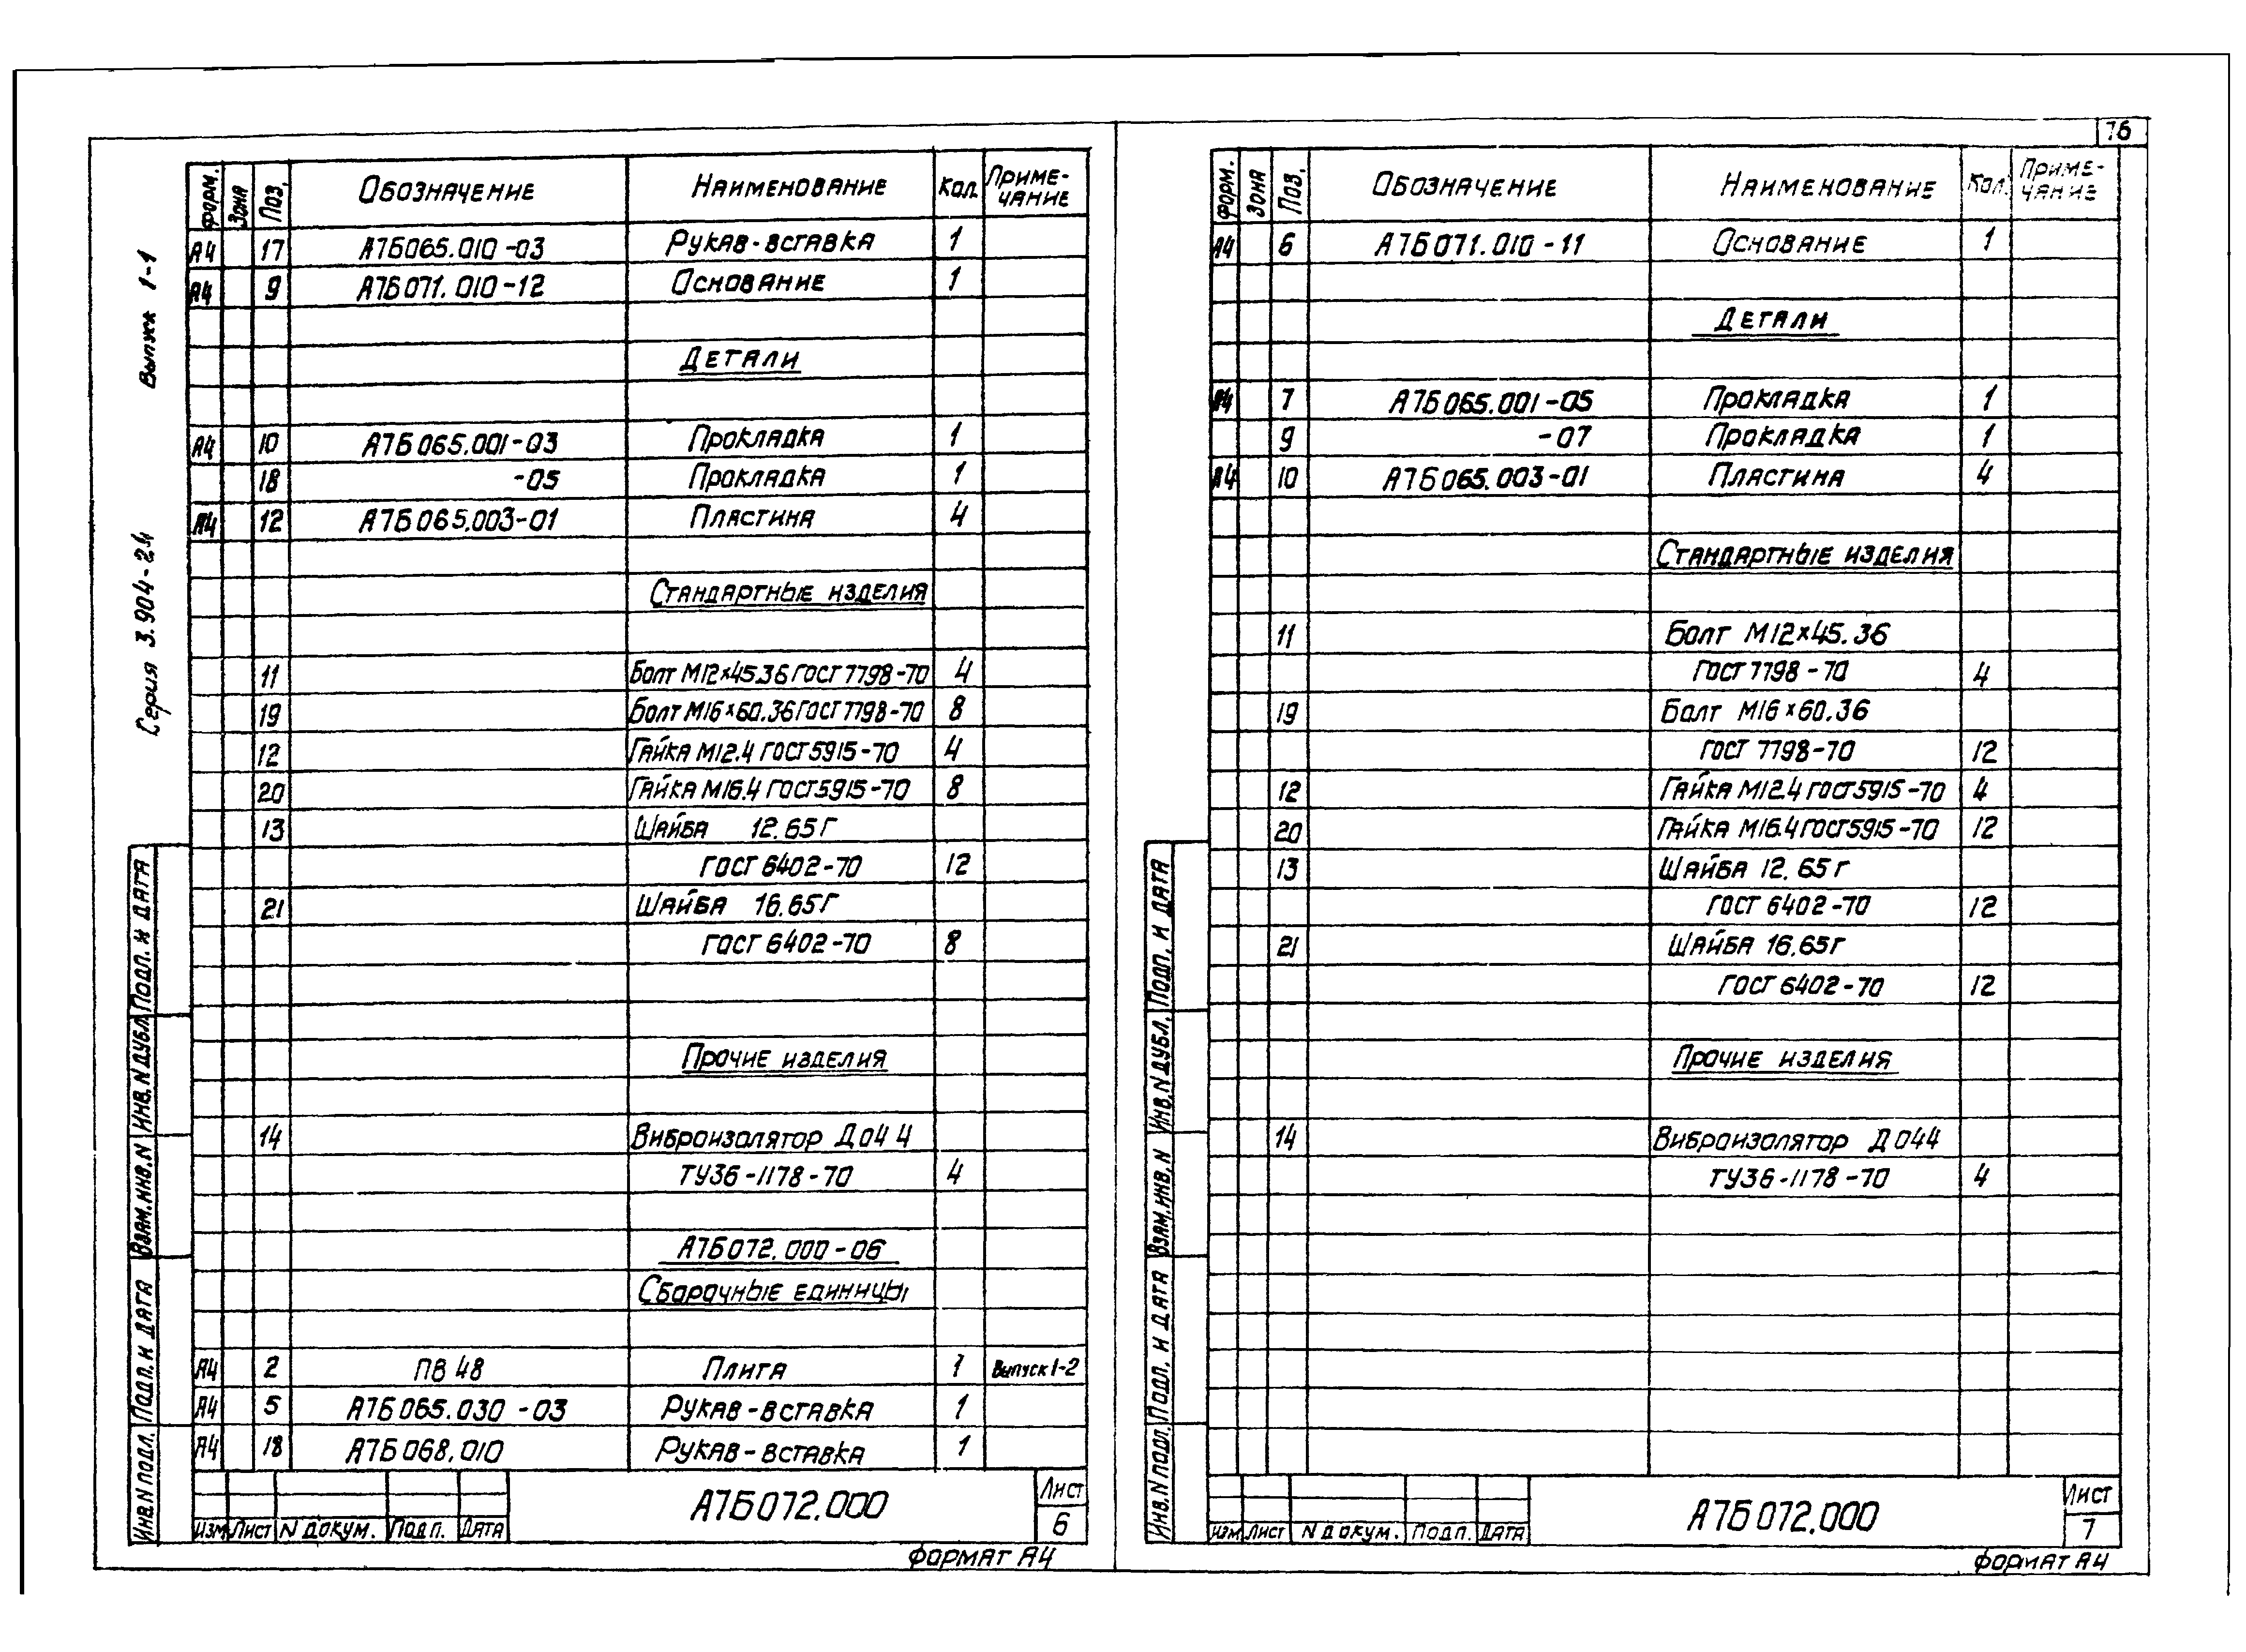 76
Серия 3.904-24 Выпуск 1-1
Форм. Зона Поз. Обозначение Наименование Кол. Приме-
чание
А4 17 А7Б065.010-03 Рукав-вставка 1
А4 9 А7Б071.010-12 Основание 1
Детали
А4 10 А7Б065.001-03 Прокладка 1
18 -05 Прокладка 1
А4 12 А7Б065.003-01 Пластина 4
Стандартные изделия
11 Болт М12×45.36 ГОСТ 7798-70 4
19 Болт М16×60.36 ГОСТ 7798-70 8
12 Гайка М12.4 ГОСТ 5915-70 4
20 Гайка М16.4 ГОСТ 5915-70 8
13 Шайба 12.65Г
ГОСТ 6402-70 12
21 Шайба 16.65Г
ГОСТ 6402-70 8
Прочие изделия
14 Виброизолятор Д044
ТУ36-1178-70 4
А7Б072.000-06
Сборочные единицы
А4 2 ПВ 48 Плита 1 Выпуск 1-2
А4 5 А7Б065.030-03 Рукав-вставка 1
А4 18 А7Б068.010 Рукав-вставка 1
Инв.N подл. Подп. и дата Взам.инв.N Инв.N дубл. Подп. и дата
Изм Лист N докум. Подп. Дата
А7Б072.000
Лист
6
Формат А4
Форм. Зона Поз. Обозначение Наименование Кол. Приме-
чание
А4 6 А7Б071.010-11 Основание 1
Детали
А4 7 А7Б065.001-05 Прокладка 1
9 -07 Прокладка 1
А4 10 А7Б065.003-01 Пластина 4
Стандартные изделия
11 Болт М12×45.36
ГОСТ 7798-70 4
19 Болт М16×60.36
ГОСТ 7798-70 12
12 Гайка М12.4 ГОСТ 5915-70 4
20 Гайка М16.4 ГОСТ 5915-70 12
13 Шайба 12.65Г
ГОСТ 6402-70 12
21 Шайба 16.65Г
ГОСТ 6402-70 12
Прочие изделия
14 Виброизолятор Д044
ТУ36-1178-70 4
Инв.N подл. Подп. и дата Взам.инв.N Инв.N дубл. Подп. и дата
Изм Лист N докум. Подп. Дата
А7Б072.000
Лист
7
Формат А4